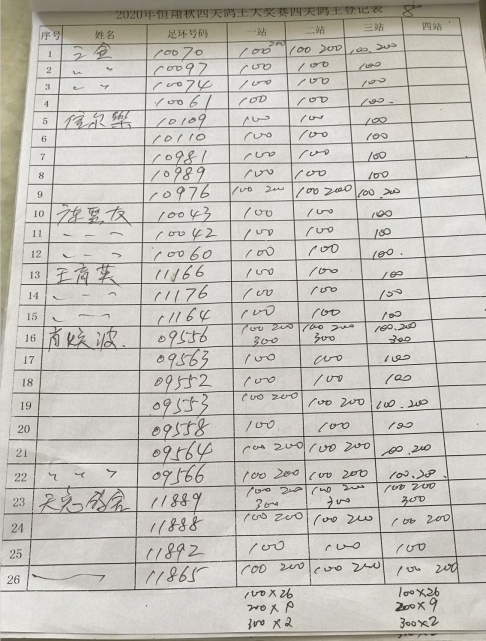 2020年恒翔秋四天鸽王大奖赛四天鸽王登记表 8
序号 姓名 足环号码 一站 二站 三站 四站
1 10070 100 200 100 200 100.200
2 〃 〃 10097 100 100 100
3 〃 〃 10074 100 100 100
4 10061 100 100 100.
5 10109 100 100 100
6 10110 100 100 100
7 10981 100 100 100
8 10989 100 100 100
9 10976 100 200 100 200 100.200
10 10043 100 100 100
11 10042 100 100 100
12 10060 100 100 100.
13 王育英 11166 100 100 100
14 11176 100 100 100
15 11164 100 100 100
16 肖焕波. 09556 100 200 300 100 200 300 100.200 300
17 09563 100 100 100
18 09552 100 100 100
19 09553 100 200 100 200 100.200
20 09558 100 100 100
21 09564 100 200 100 200 100.200
22 〃 〃 〃 09566 100 200 100 200 100.200
23 11889 100 200 300 100 200 300 100 200 300
24 11888 100 200 100 200 100 200
25 11892 100 100 100
26 11865 100 200 100 200 100 200
100×26 100×26
200×9 200×9
300×2 300×2